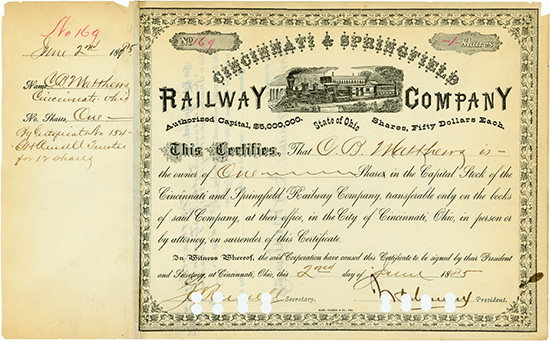 No 169
June 2nd 1885
Name C. B. Matthews
Cincinnati Ohio
No. Shares, One
By Certificate No 154
Trustee
for 12 shares
No. 169
1 Shares
CINCINNATI & SPRINGFIELD
RAILWAY COMPANY
Authorized Capital, $5,000,000. State of Ohio Shares, Fifty Dollars Each.
This Certifies, That C. B. Matthews is
the owner of One Shares in the Capital Stock of the
Cincinnati and Springfield Railway Company, transferable only on the books
of said Company, at their office, in the City of Cincinnati, Ohio, in person or
by attorney, on surrender of this Certificate.
In Witness Whereof, the said Corporation have caused this Certificate to be signed by their President
and Secretary, at Cincinnati, Ohio, this 2nd day of June 1885
Secretary. President.